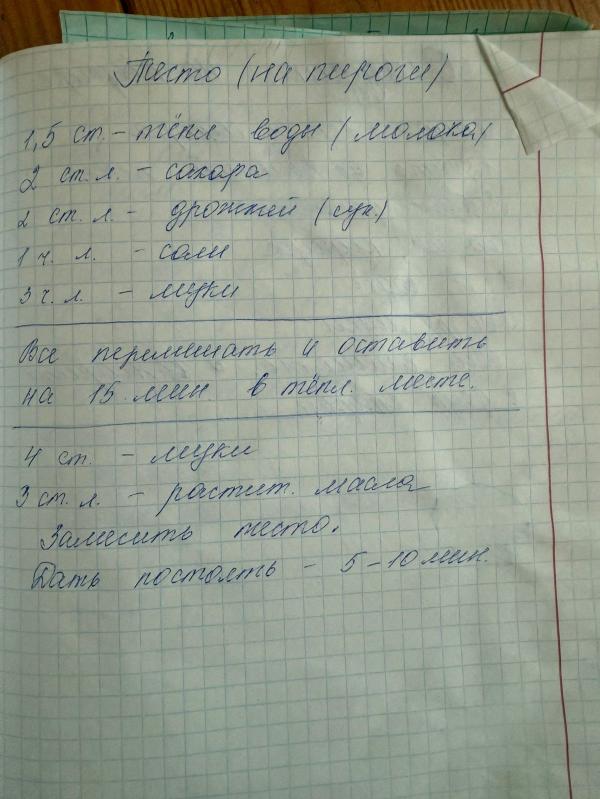 Тесто (на пироги)
1,5 ст. – тёпл. воды (молока)
2 ст. л. – сахара
2 ст. л. – дрожжей (сух.)
1 ч. л. – соли
3 ч. л. – муки
Все перемешать и оставить
на 15 мин. в тёпл. месте.
4 ст. – муки
3 ст. л. – растит. масла
Замесить тесто.
Дать постоять – 5–10 мин.